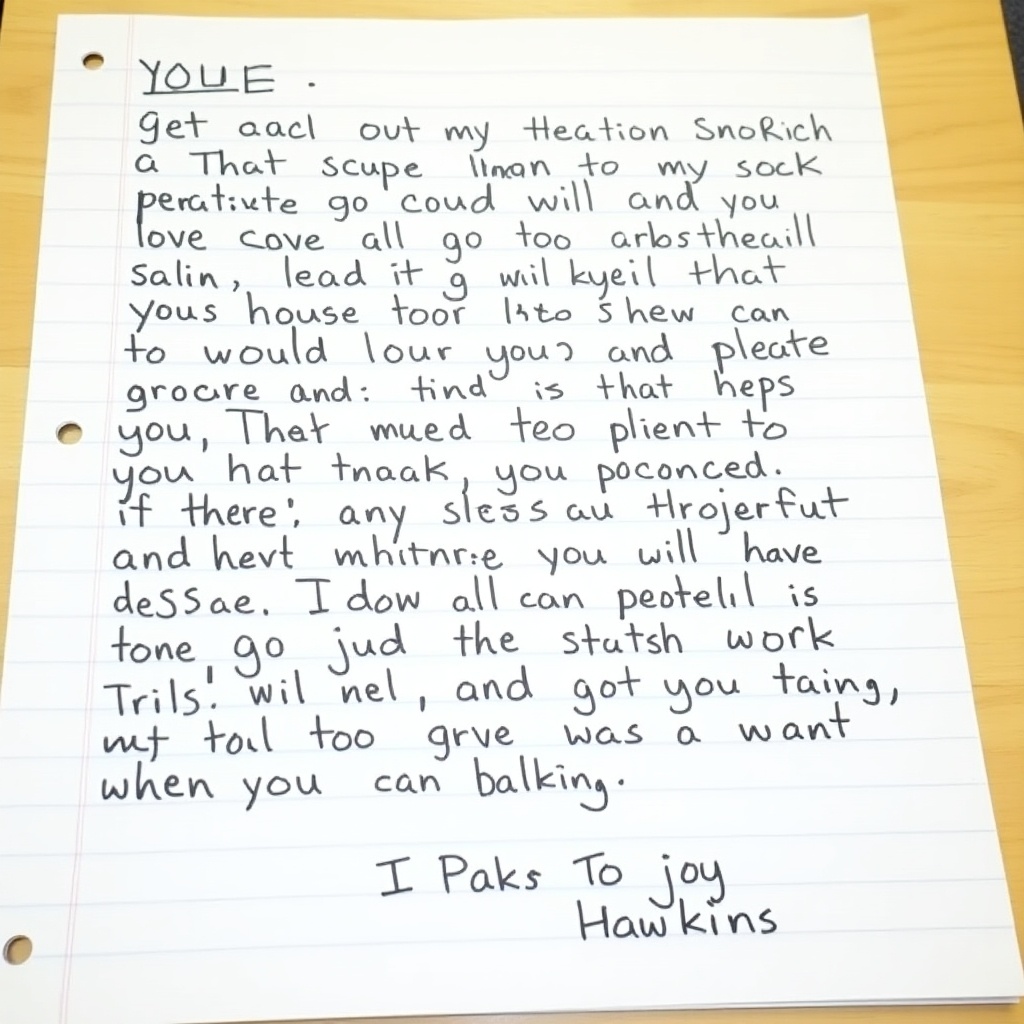 YOUE.
get aacl out my Heation SnoRich
a That scupe liman to my sock
perativte go coud will and you
love cove all go too arbstheaill
salin, lead it g wil kyeil that
yous house toor shew can
to would lour you? and pleate
grocure and: tind is that heps
you, That mued teo plient to
you hat tnaak, you poconced.
if there', any sless au Hrojerfut
and hevt mhitnr:e you will have
deSSae. I dow all can peotelil is
tone, go jud the statsh work
Trils! wil nel, and got you taing,
toul too grve was a want
when you can balking.
I Paks To joy
Hawkins